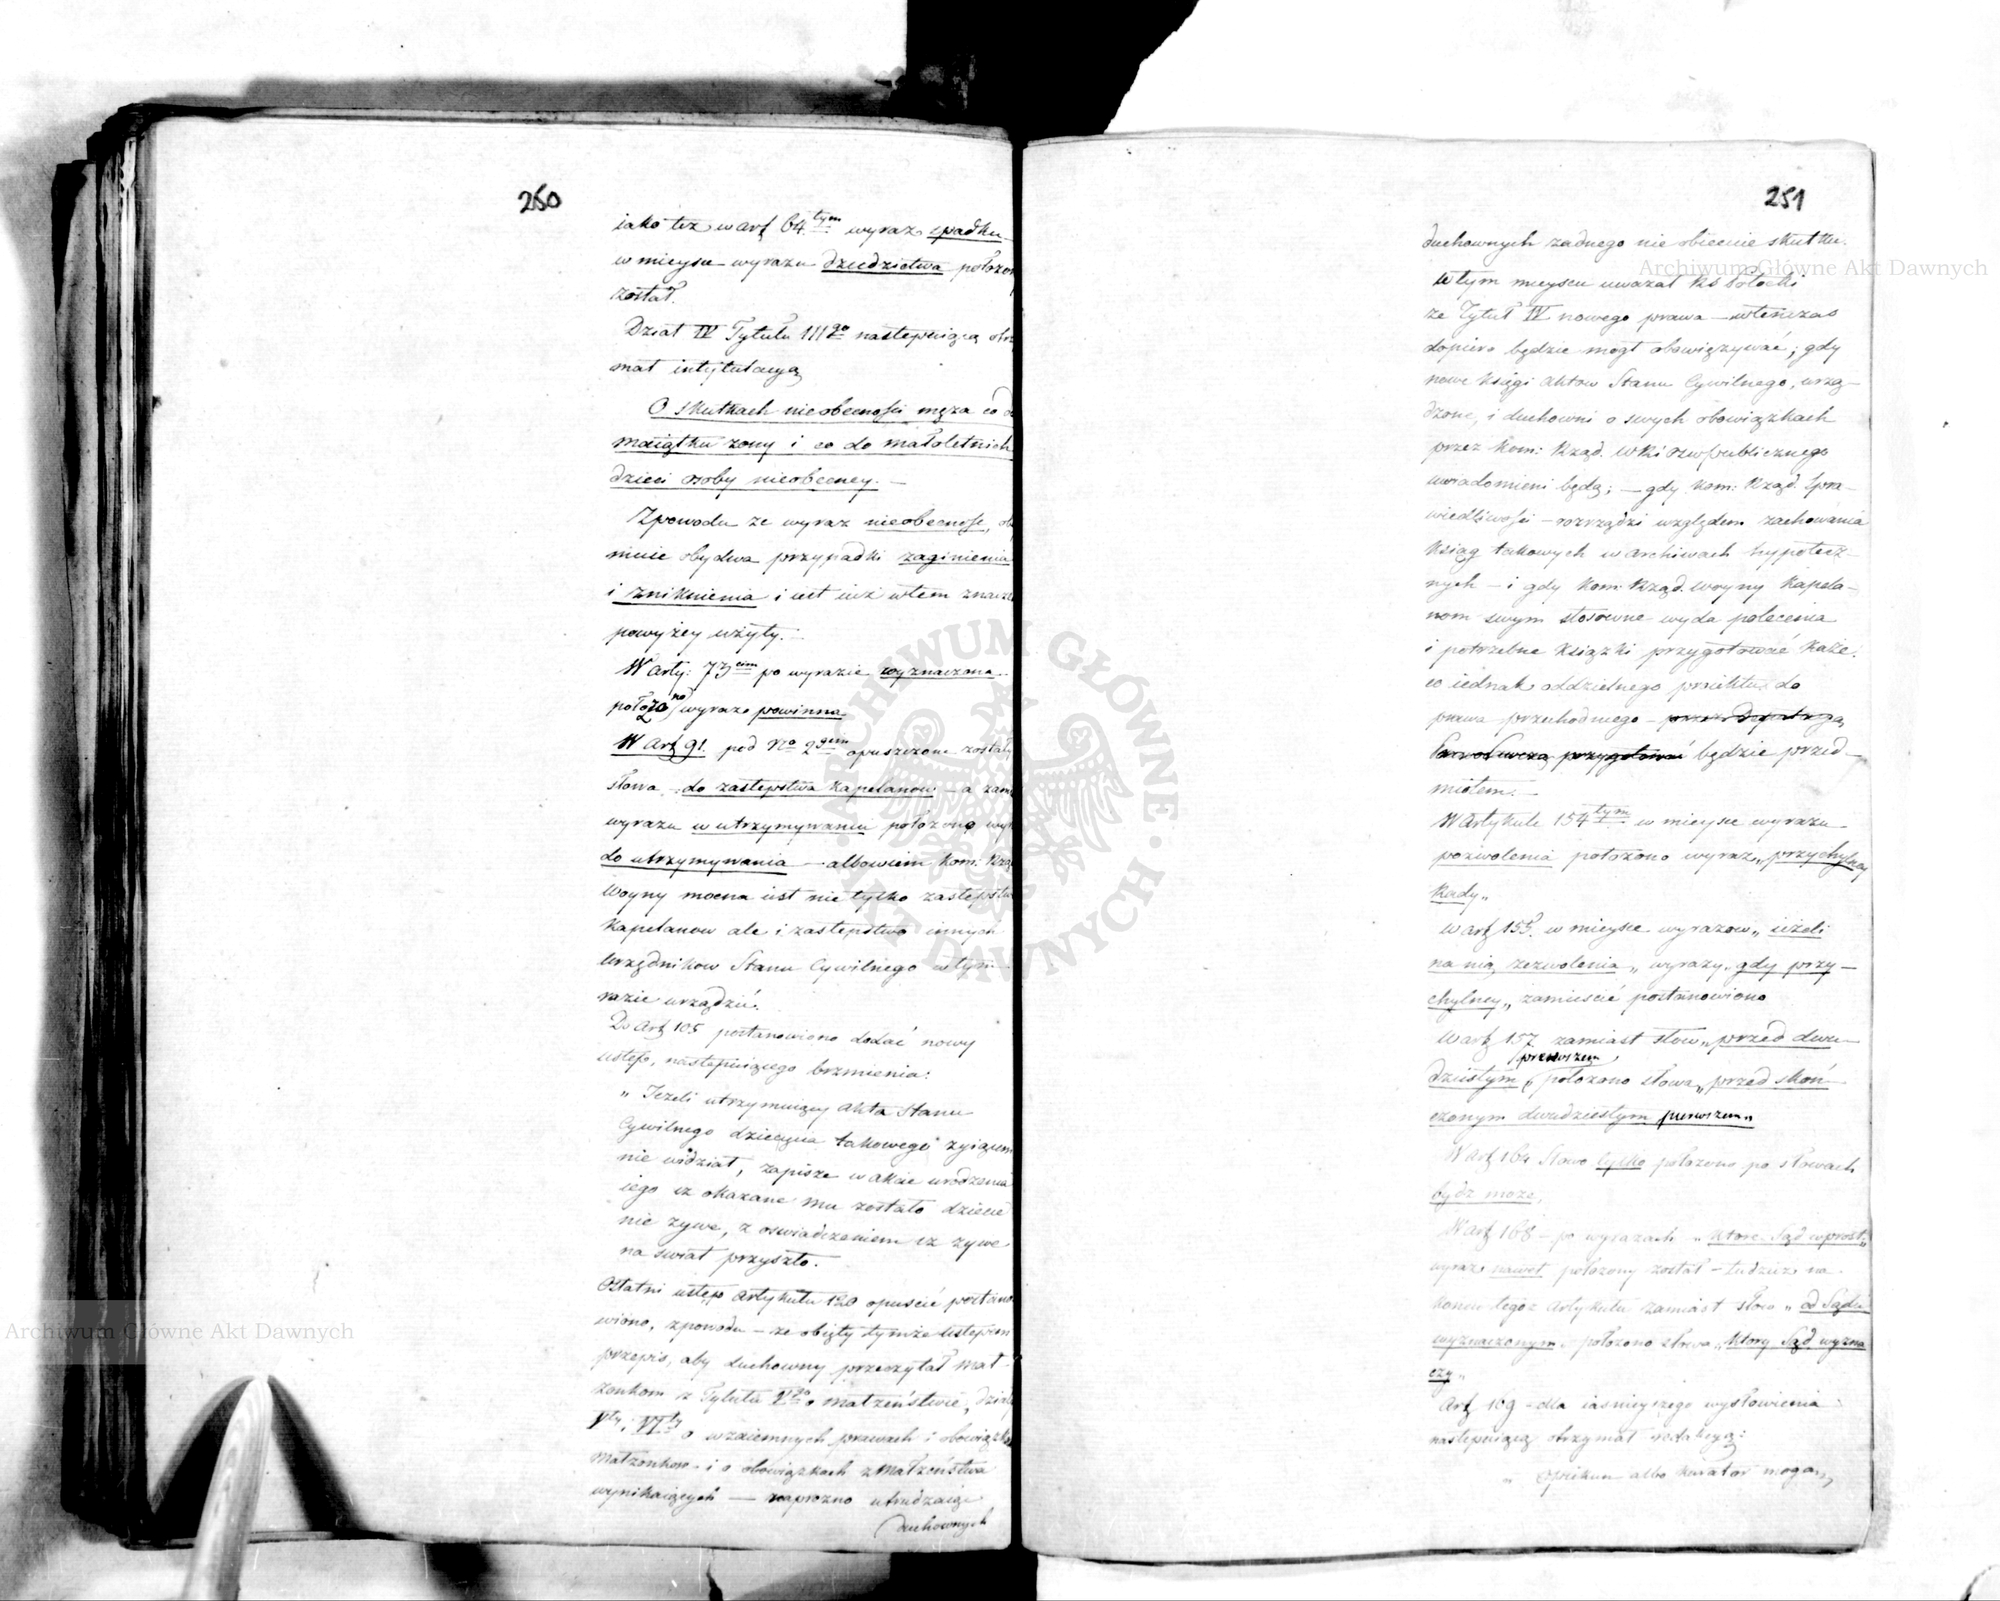 260
iako też w art 64.tym wyraz spadku
w mieysce wyrazu dziedzictwa położon
został.
Dział IV Tytułu III go następuiącą otrz
mał intytulacyą
O skutkach nieobecności męża co do
maiątku żony i co do małoletnich
dzieci osoby nieobecney. —
Zpowodu że wyraz nieobecność, ob
muie obydwa przypadki zaginienia
i zniknienia i iest iuż wtem znacze
powyżey użyty. —
W arty: 73cim po wyrazie wyznaczona
położono wyraz powinna
W art 91. pod No 2gim opuszczone zostały
słowa — do zastępstwa Kapelanow — a zam
wyrazu w utrzymywaniu położono wyr
do utrzymywania — albowiem Kom: Rzą
Woyny mocna iest nie tylko zastępstw
Kapelanow ale i zastępstwo innych
Urzędnikow Stanu Cywilnego w tym
razie urządzić.
Do art 105 postanowiono dodać nowy
ustęp, następuiącego brzmienia:
„ Jeżeli utrzymuiący Akta Stanu
Cywilnego dziecięcia takowego żyiącem
nie widział, zapisze w akcie urodzenia
iego iż okazane mu zostało dziecie
nie żywe, z oswiadczeniem iż żywe
na swiat przyszło.
Ostatni ustęp Artykułu 120 opuścić postano
wiono, zpowodu — że obięty tymże ustępem
przepis, aby duchowny przeczytał mał
żonkom z Tytułu Vgo o małżeństwie, dział
Vty i VIty o wzaiemnych prawach i obowiązka
małżonkow i o obowiązkach z małżeństwa
wynikaiących — naprożno utrudzaiąc
duchownych
251
duchownych żadnego nie obiecuie skutku.
W tym mieyscu uważał RS Potocki
że Tytuł IV nowego prawa — wtenczas
dopiero będzie mogł obowiązywać; gdy
nowe księgi Aktow Stanu Cywilnego, urzą—
dzone, i duchowni o swych obowiązkach
przez Kom: Rząd. WR i Oswpublicznego
uwiadomieni będą; — gdy Kom: Rząd. Spra—
wiedliwości — rozrządzi względem zachowania
Ksiąg takowych w archiwach hypotecz—
nych — i gdy Kom: Rząd. Woyny Kapela—
nom swym stosowne wyda polecenia
i potrzebne książki przygotować każe.
co iednak oddzielnego proiektu do
prawa przechodniego — przez Deputacyą
Prawodawczą przygotować będzie przed—
miotem. —
W Artykule 154tym w mieysce wyrazu
pozwolenia położono wyraz „ przychylney
Rady „
w art 155. w mieysce wyrazow „ ieżeli
na nią zezwolenia „ wyrazy „ gdy przy—
chylney „ zamieścić postanowiono
W art 157 zamiast słow „ przed dwu—
pierwszem
dziestym położono słowa „ przed skoń—
czonym dwudziestym pierwszem „
W art 164 Słowo tylko położono po słowach
bydź może,
W art 168 — po wyrazach „ ktore Sąd wprost „
wyraz nawet położony został — tudzież na
końcu tegoż Artykułu zamiast słow „ od Sądu
wyznaczonym „ położono słowa „ ktory Sąd wyzna
czy „
Art 169 — dla iaśnieyszego wysłowienia
następuiącą otrzymał redakcyą:
„ Opiekun albo Kurator mogą,
Archiwum Główne Akt Dawnych
Archiwum Główne Akt Dawnych
ARCHIWUM GŁÓWNE AKT DAWNYCH